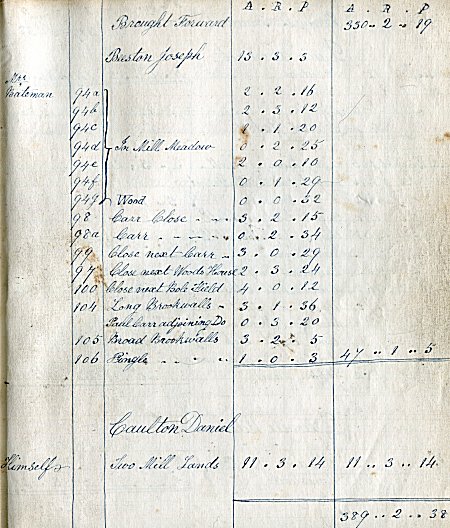 A. R. P A. R. P
Brought Forward 330..2..19
Beeston Joseph 13.3.3
Mrs
Bateman 94a 2.2.16
94b 2.3.12
94c 1.1.20
94d In Mill Meadow 0.2.25
94e 2.0.10
94f 0.1.29
94g Wood 0.0.32
98 Carr Close 3.2.15
98a Carr 0.2.34
99 Close next Carr 3.0.29
97 Close next Woods House 2.3.24
100 Close next Bole Field 4.0.12
104 Long Brookwalls 3.1.36
Paul Carr adjoining Do 0.3.20
105 Broad Brookwalls 3.2.5
106 Pingle 1.0.3 47..1..5
Caulton Daniel
Himself Two Mill Lands 11.3.14 11..3..14
389..2..38